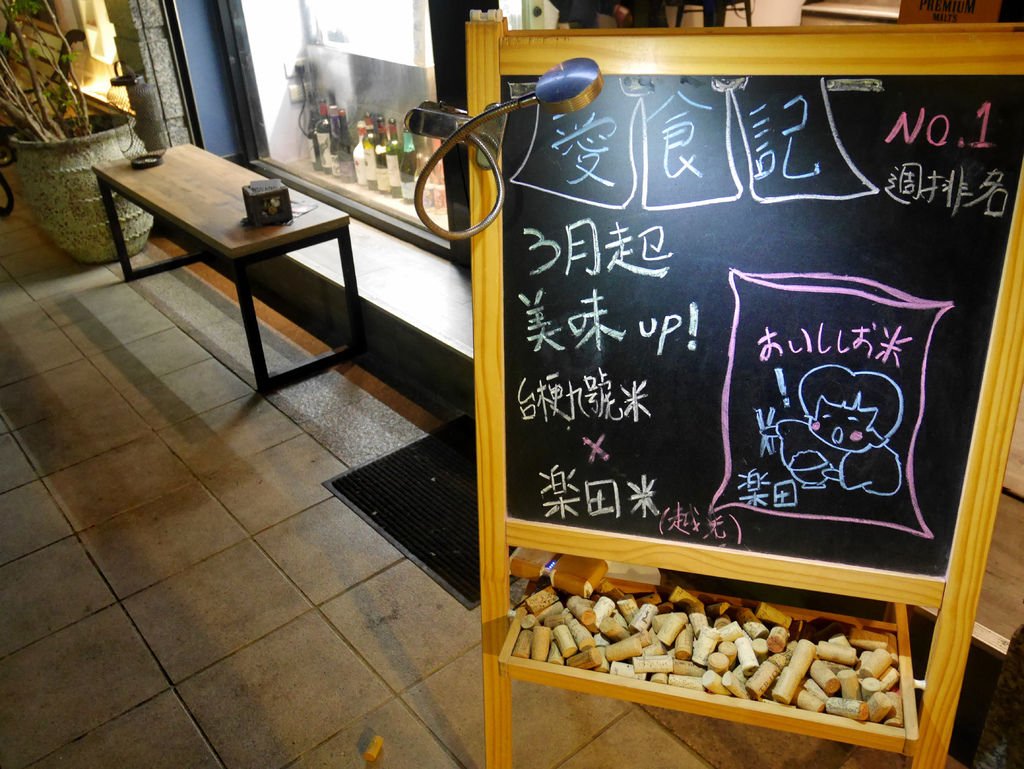 PREMIUM
MALTS
愛食記
NO.1
週排名
3月起
美味 UP!
台梗九號米
×
楽田米
(越光)
おいししお米
!
楽田